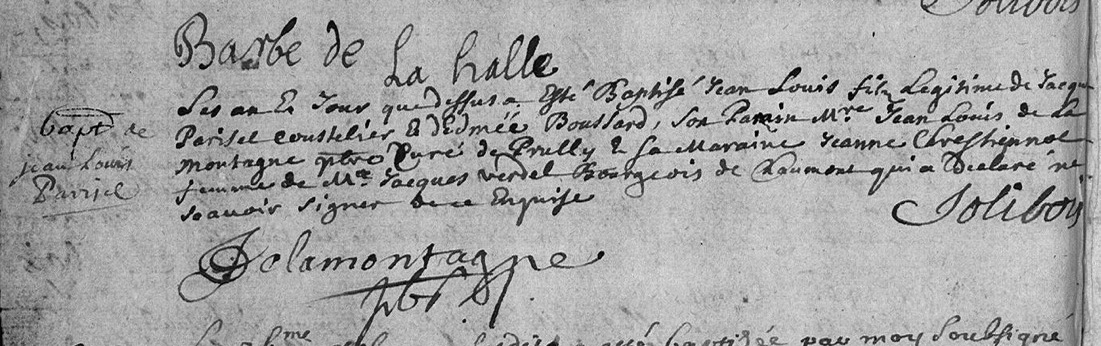 Jolibois
Barbe de La halle
Les an Et Jour que dessus a Esté Baptisé Jean Louis fils Legitime de Jacques
bapt de
Parisel coustelier Et dEdmée Boussard, son Parain Mre Jean Louis de La
jean Louis
montagne pbre Curé de Prully & sa Maraine Jeanne Chrestiennot
Parisel
femme de Me Jacques verdel Bourgeois de Chaumont qui a Declaré ne
scauoir signer de ce Enquise
Jolibois
Delamontagne
pbr
baptisée par moy soubsigné